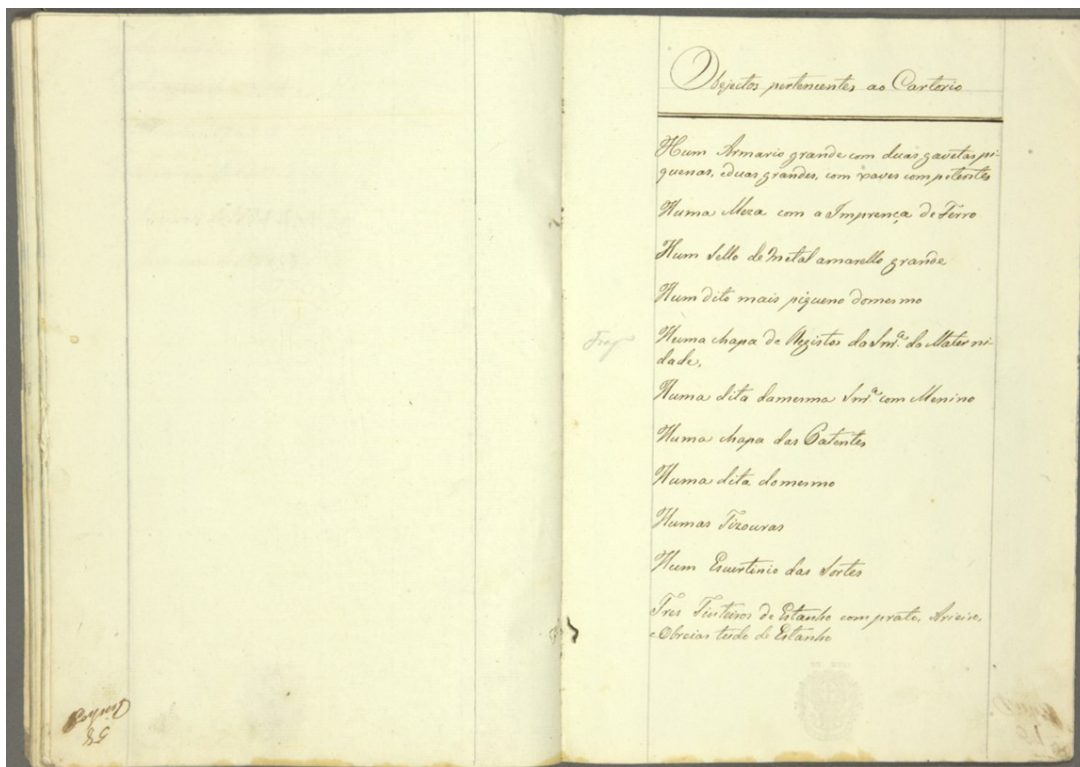 Objectos pertencentes ao Cartorio
Hum Armario grande com duas gavetas pi-
quenas, e duas grandes, com xaves competentes
Huma Meza com a Imprença de Ferro
Hum Sello de metal amarello grande
Hum dito mais piqueno do mesmo
Huma chapa de Registos da Snr.ª da Materni-
dade,
Huma dita da mesma Snr.ª com Menino
Huma chapa das Patentes
Huma dita do mesmo
Humas Tizouras
Hum Escurtinio das Sortes
Tres Tinteiros de Estanho com prato, Arieiro,
e Obreias tudo de Estanho
58